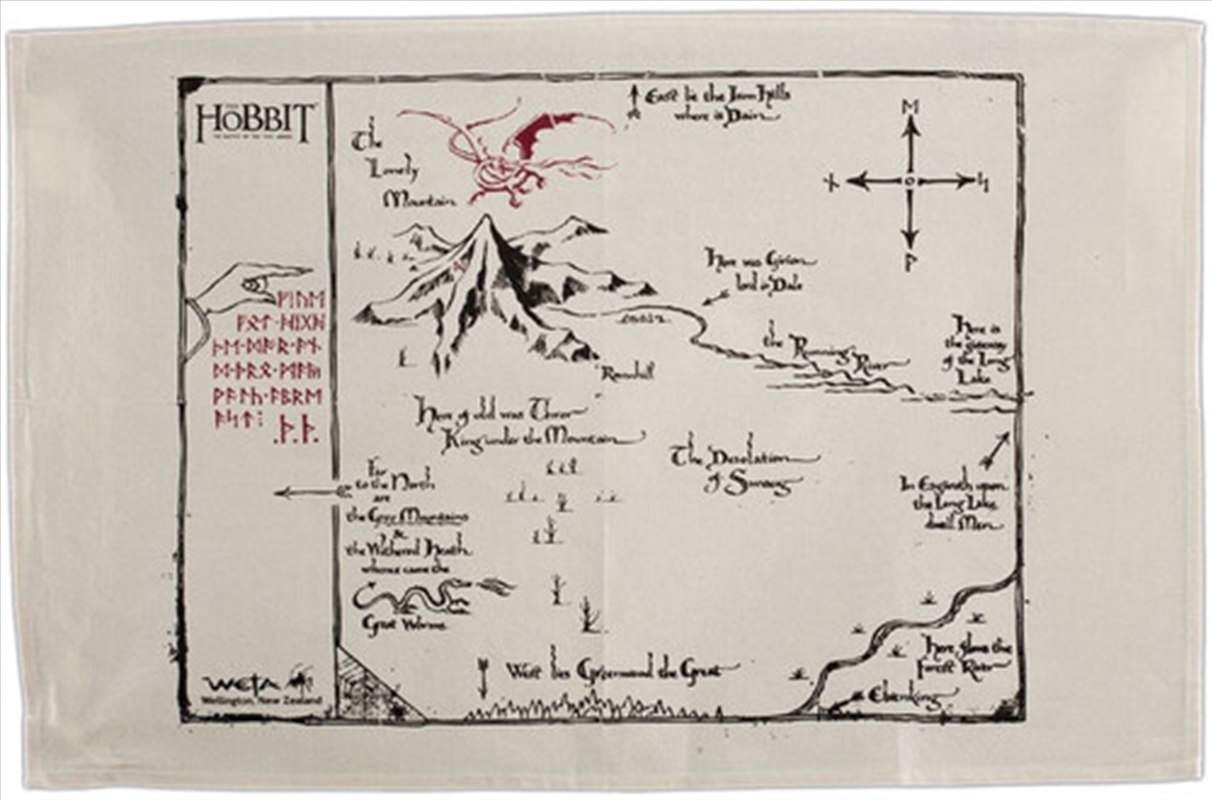 THE
HOBBIT
THE BATTLE OF THE FIVE ARMIES
East lie the Iron Hills
where is Dain
The
Lonely
Mountain
Here was Girion
lord in Dale
ᚠᛁᚢᛖ
ᚠᚩᛏ·ᚻᛁᚷᚻ
ᚦᛖ·ᛞᚩᚱ·ᚪᚾ
ᛞ·ᚦᚱᛖ·ᛗᚪᚣ
ᚹᚪᛚᚳ·ᚪᛒᚱᛖ
ᚪᛋᛏ:
.ᚦ.ᚦ.
the Running River
Here is
the
of the Long
Lake
Ravenhill
Here of old was Thror
King under the Mountain
The Desolation
of Smaug
Far
to the North
are
the Grey Mountains
&
the Withered Heath
whence came the
Great Worms
In Esgaroth upon
the Long Lake
dwell Men
Here flows the
Forest River
Elvenking
West lies Mirkwood the Great
WETA
Wellington, New Zealand